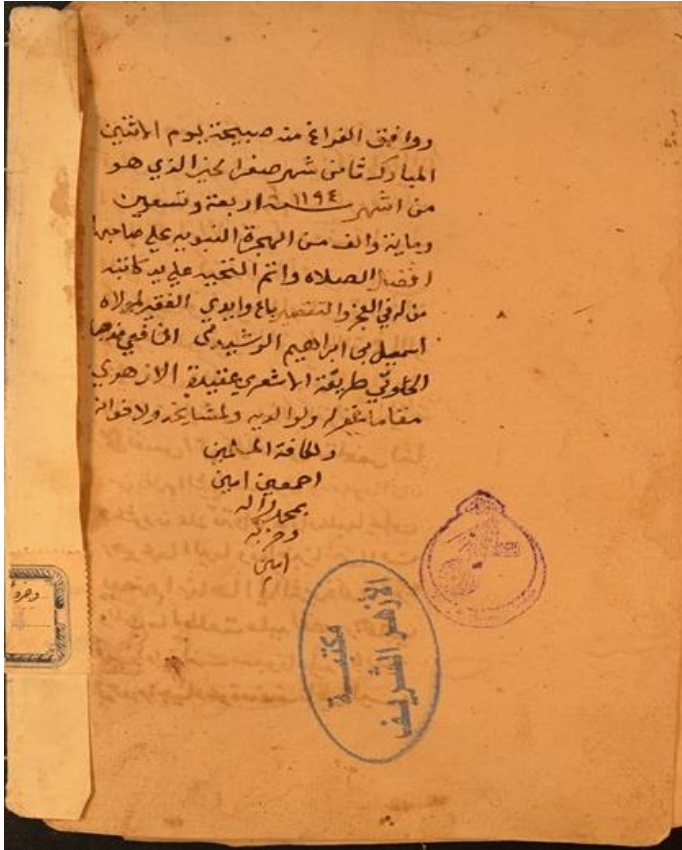 ووافق الفراغ منه صبيحة يوم الاثنين
المبارك ثامن شهر صفر الخير الذي هو
من اشهر سنة ١١٩٤ اربعة وتسعين
وماية والف من الهجرة النبوية على صاحبها
افضل الصلاه واتم التحية على يد كاتبه
من له في العجز والتقصير باع وايدي الفقير لمولاه
اسمعيل بن ابراهيم الرشيدي الشافعي مذهبا
الخلوتي طريقة الاشعري عقيدة الازهري
مقاما غفر له ولوالديه ولمشايخه ولاخوانه
ولكافة المسلمين
اجمعين امين
بمحمد واله
وحزبه
امين
مكتبة
الأزهر الشريف